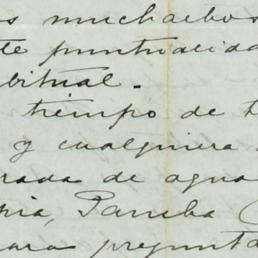 os muchachos
te puntualida
bitual.
tiempo de t
y cualquiera
rada de agua
pia, Pamba (
para pregunta